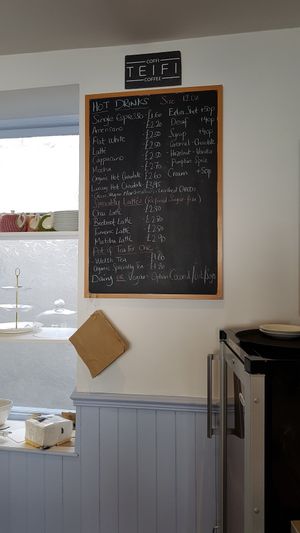 COFFI
TEIFI
COFFEE
HOT DRINKS
Single Espresso -£1.60
Americano -£2.20
Flat White -£2.50
Latté -£2.50
Cappucino -£2.50
Mocha -£2.70
Organic Hot Chocolate -£2.60
Luxury Hot Chocolate £3.45
Speciality Lattés (Refined Sugar free)
Chai Latté -£2.80
Beetroot Latté -£2.80
Tumeric Latté -£2.80
Matcha Latté -£2.90
Pot of Tea for One
Welsh Tea
Organic Speciality Tea
Dairy or Vegan Option Coconut/Oat/Soya
Extra Shot +50p
Decaf +40p
Syrup +40p
Caramel Chocolate
Hazelnut Vanilla
Pumpkin Spice
Cream +50p